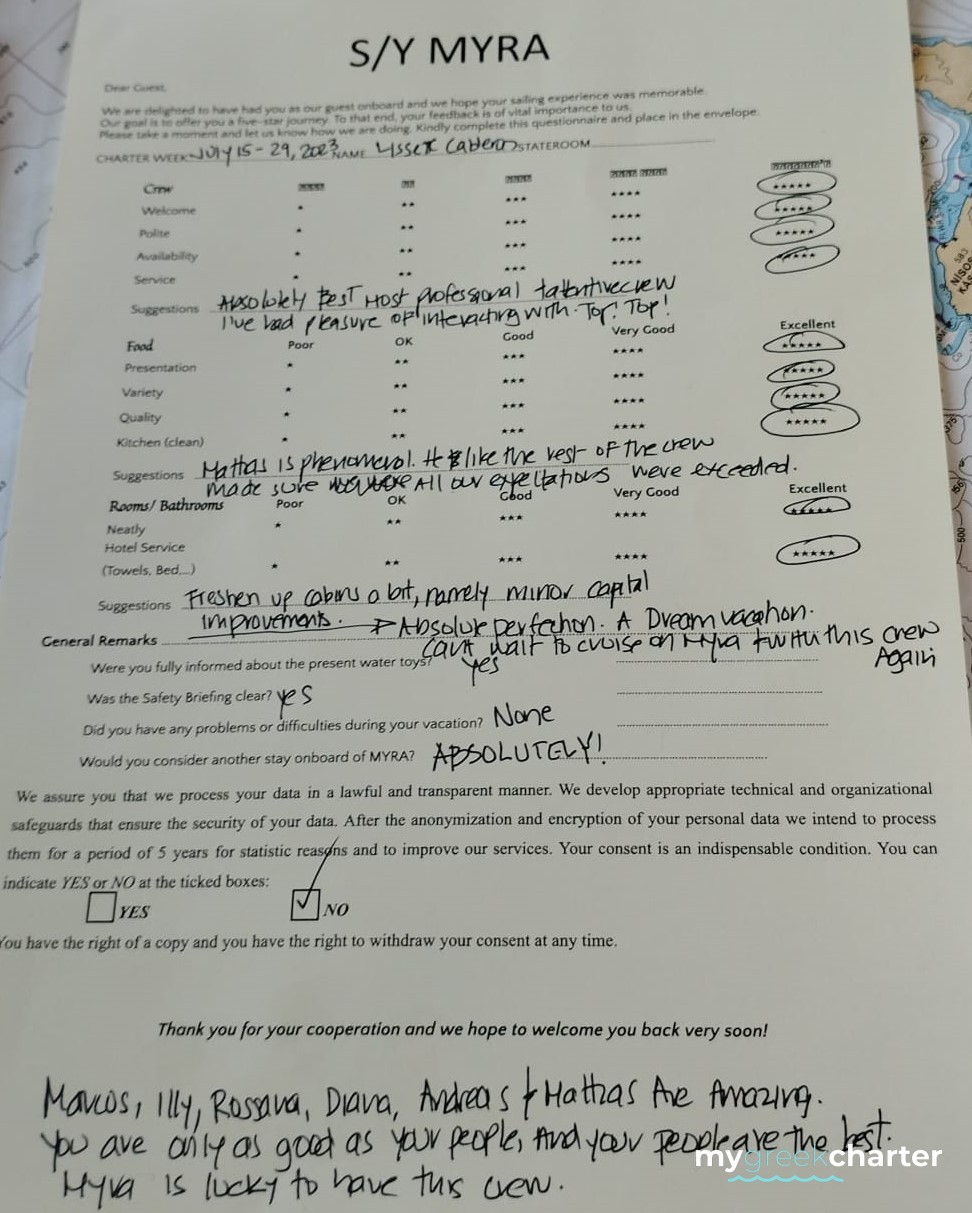 S/Y MYRA
Dear Guest,
We are delighted to have had you as our guest onboard and we hope your sailing experience was memorable.
Our goal is to offer you a five-star journey. To that end, your feedback is of vital importance to us.
Please take a moment and let us know how we are doing. Kindly complete this questionnaire and place in the envelope.
CHARTER WEEK JULY 15-29, 2023 NAME STATEROOM
Crew
Welcome * ** *** **** *****
Polite * ** *** **** *****
Availability * ** *** **** *****
Service * ** *** **** *****
Suggestions Absolutely Best Most professional + attentive crew
I've had pleasure of interacting with. Top! Top!
Food Poor OK Good Very Good Excellent
Presentation * ** *** **** *****
Variety * ** *** **** *****
Quality * ** *** **** *****
Kitchen (clean) * ** *** **** *****
Suggestions Mathas is phenomenal. He like the rest of the crew
made sure All our expectations were exceeded.
Rooms/ Bathrooms Poor OK Good Very Good Excellent
Neatly * ** *** **** *****
Hotel Service
(Towels, Bed,...) * ** *** **** *****
Suggestions Freshen up cabins a bit, namely minor capital
improvements.
General Remarks Absolute perfection. A Dream vacation.
Can't wait to cruise on Myra + with this crew
Again
Were you fully informed about the present water toys? Yes
Was the Safety Briefing clear? yes
Did you have any problems or difficulties during your vacation? None
Would you consider another stay onboard of MYRA? ABSOLUTELY!
We assure you that we process your data in a lawful and transparent manner. We develop appropriate technical and organizational
safeguards that ensure the security of your data. After the anonymization and encryption of your personal data we intend to process
them for a period of 5 years for statistic reasons and to improve our services. Your consent is an indispensable condition. You can
indicate YES or NO at the ticked boxes:
YES NO
You have the right of a copy and you have the right to withdraw your consent at any time.
Thank you for your cooperation and we hope to welcome you back very soon!
Marcos, Illy, Rossana, Diana, Andreas + Mathas Are Amazing.
You are only as good as your people, And your people are the best.
Myra is lucky to have this crew.
mygreekcharter
NISOS
583
500